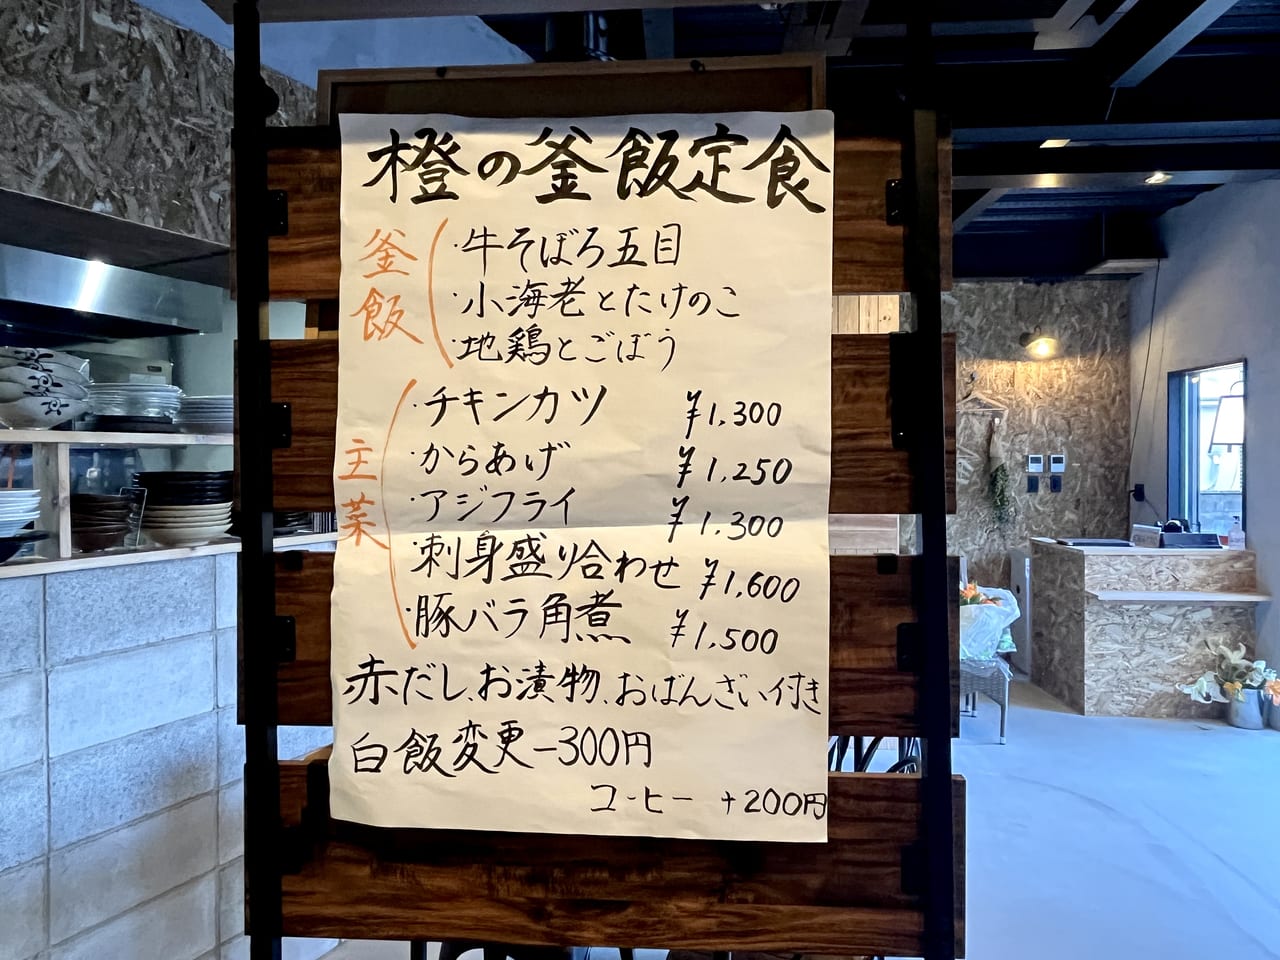 橙の釜飯定食
釜飯
・牛そぼろ五目
・小海老とたけのこ
・地鶏とごぼう
主菜
・チキンカツ ¥1,300
・からあげ ¥1,250
・アジフライ ¥1.300
・刺身盛り合わせ ¥1,600
・豚バラ角煮 ¥1,500
赤だし、お漬物、おばんざい付き
白飯変更−300円
コーヒー +200円